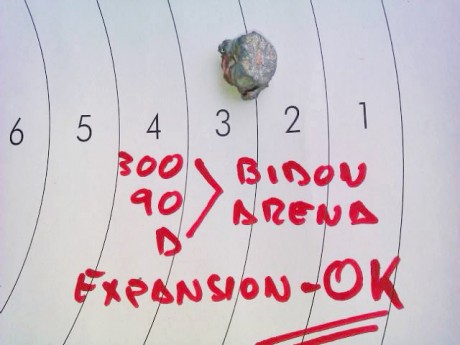 6 5 4 3 2 1
300 BIDON
90 ARENA
D
EXPANSION-OK